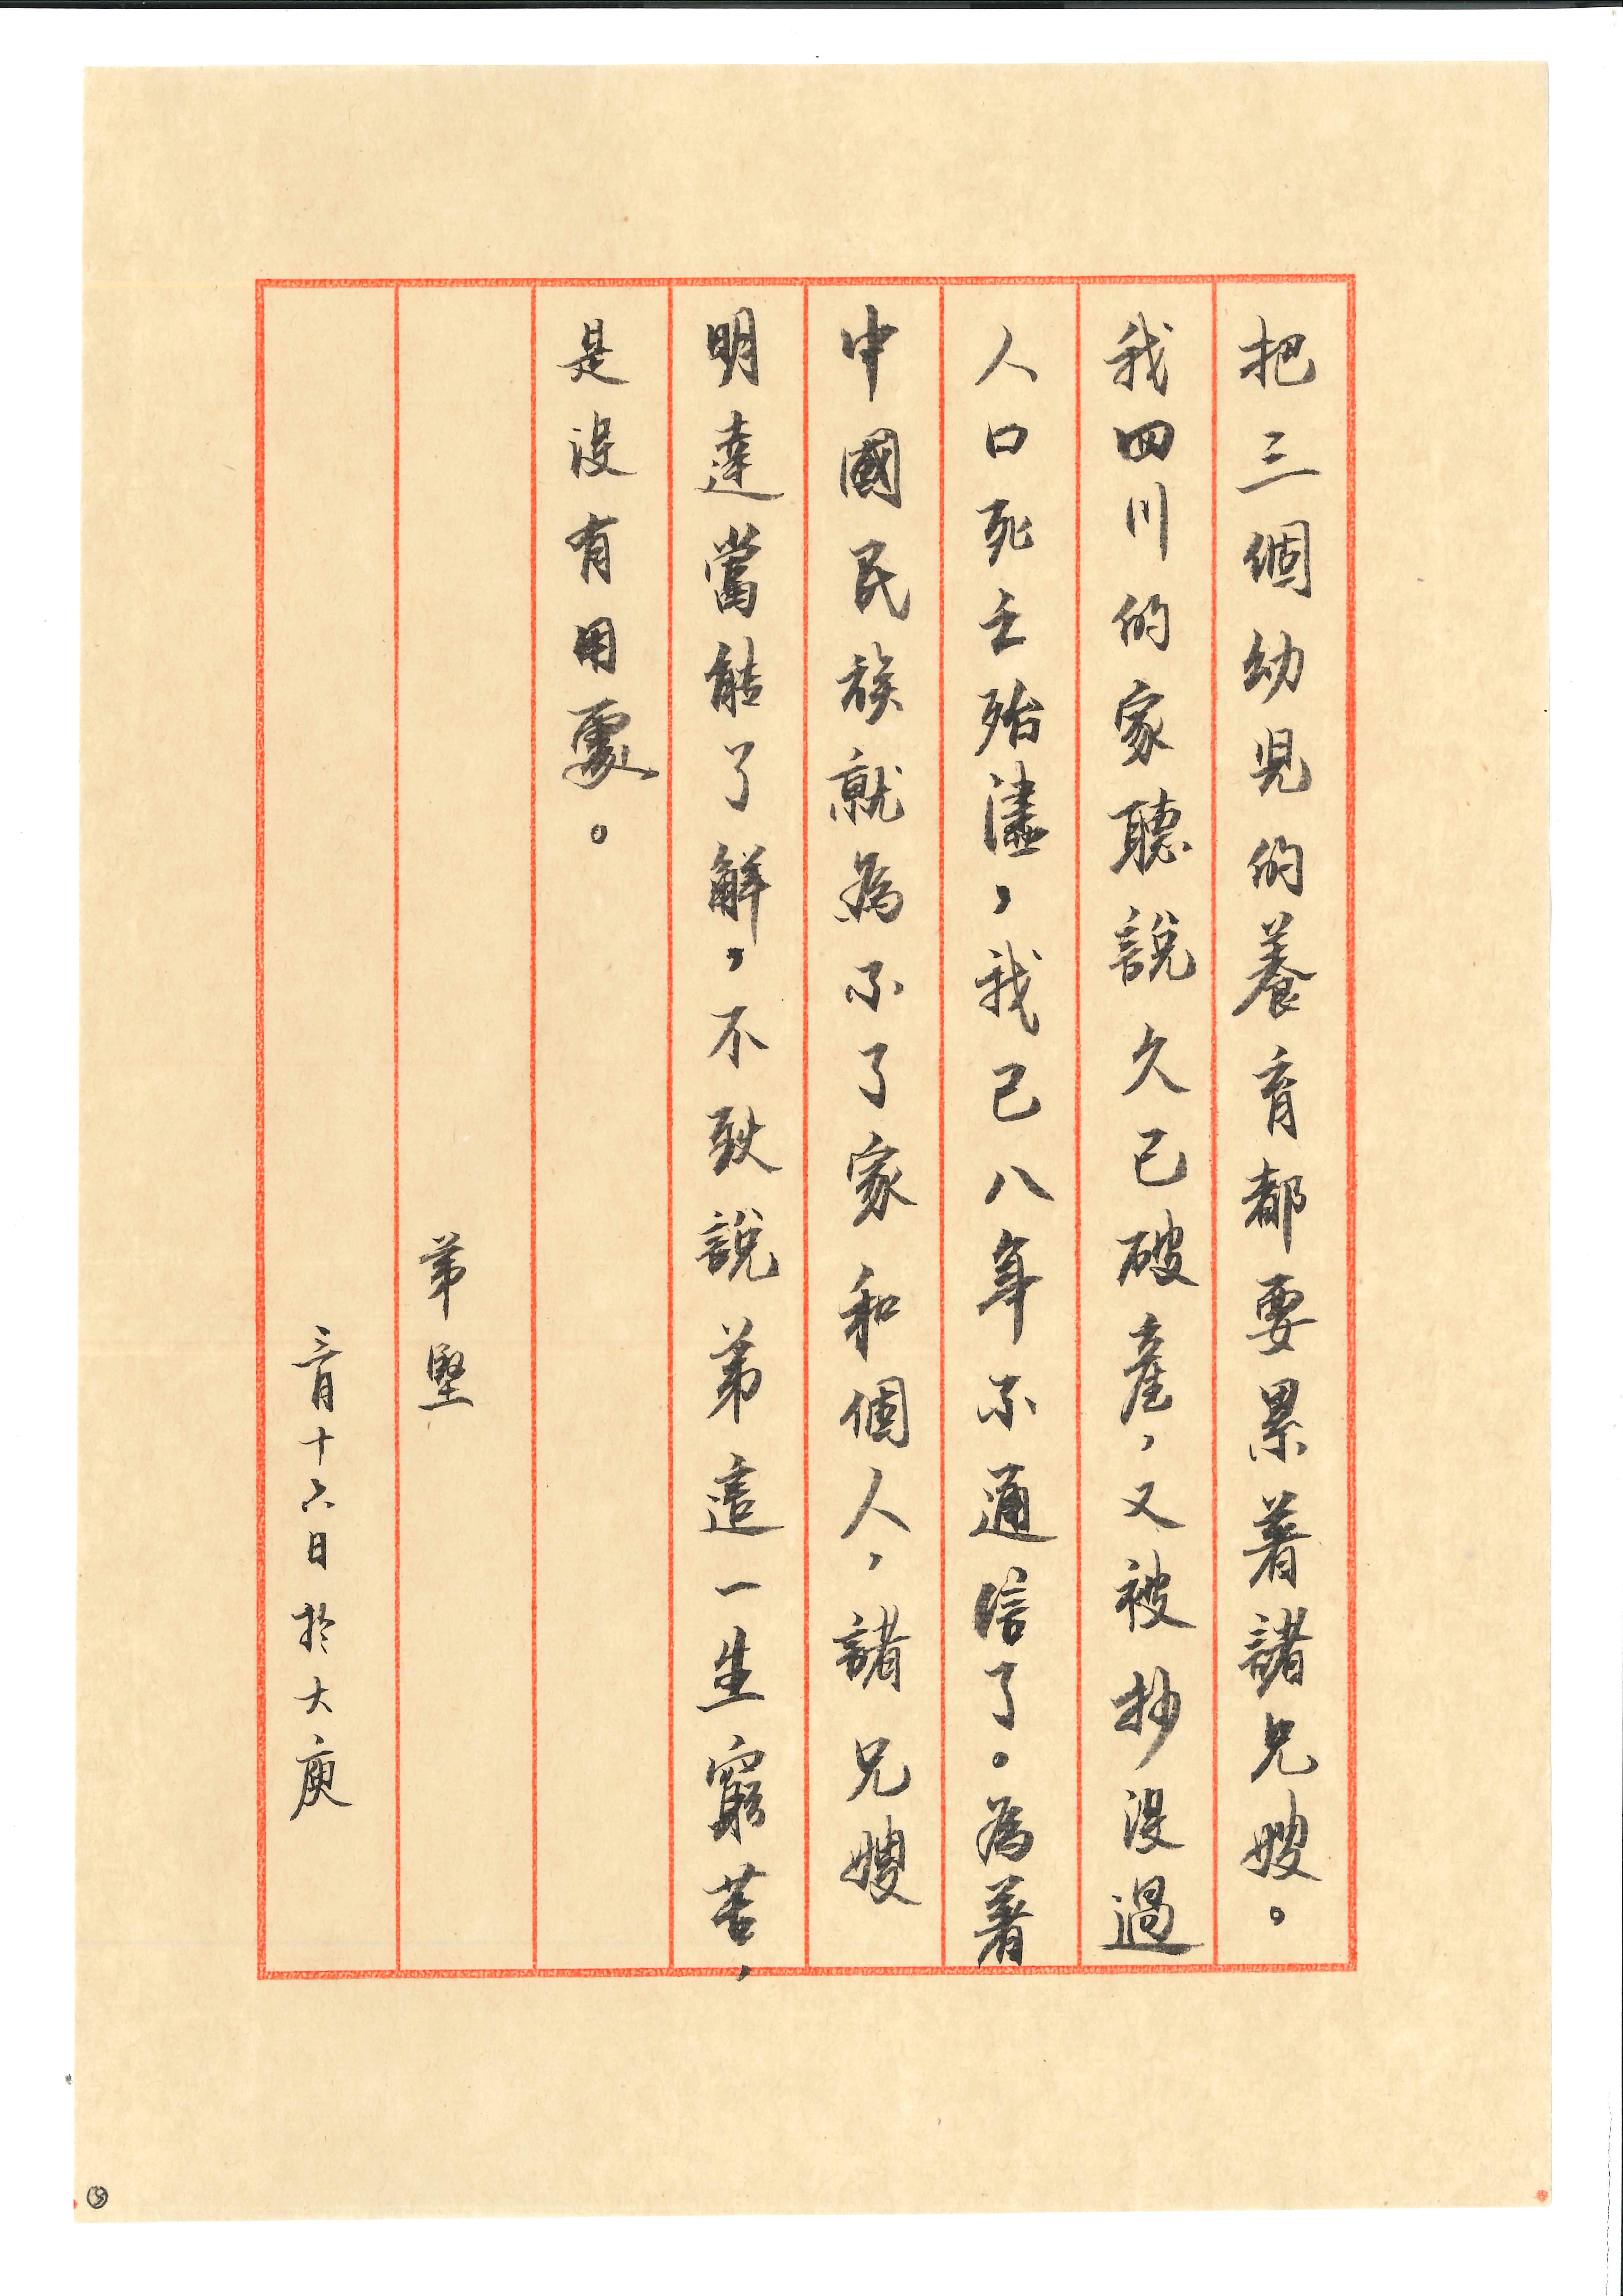 把三個幼兒的養育都要累着諸兄嫂。
我四川的家聽說久已破產，又被抄沒過
人口死亡殆盡，我已八年不通信了。為着
中國民族就為不了家和個人，諸兄嫂
明達當能了解，不致說弟這一生窮苦，
是沒有用處。
弟堅
三月十六日於大庾